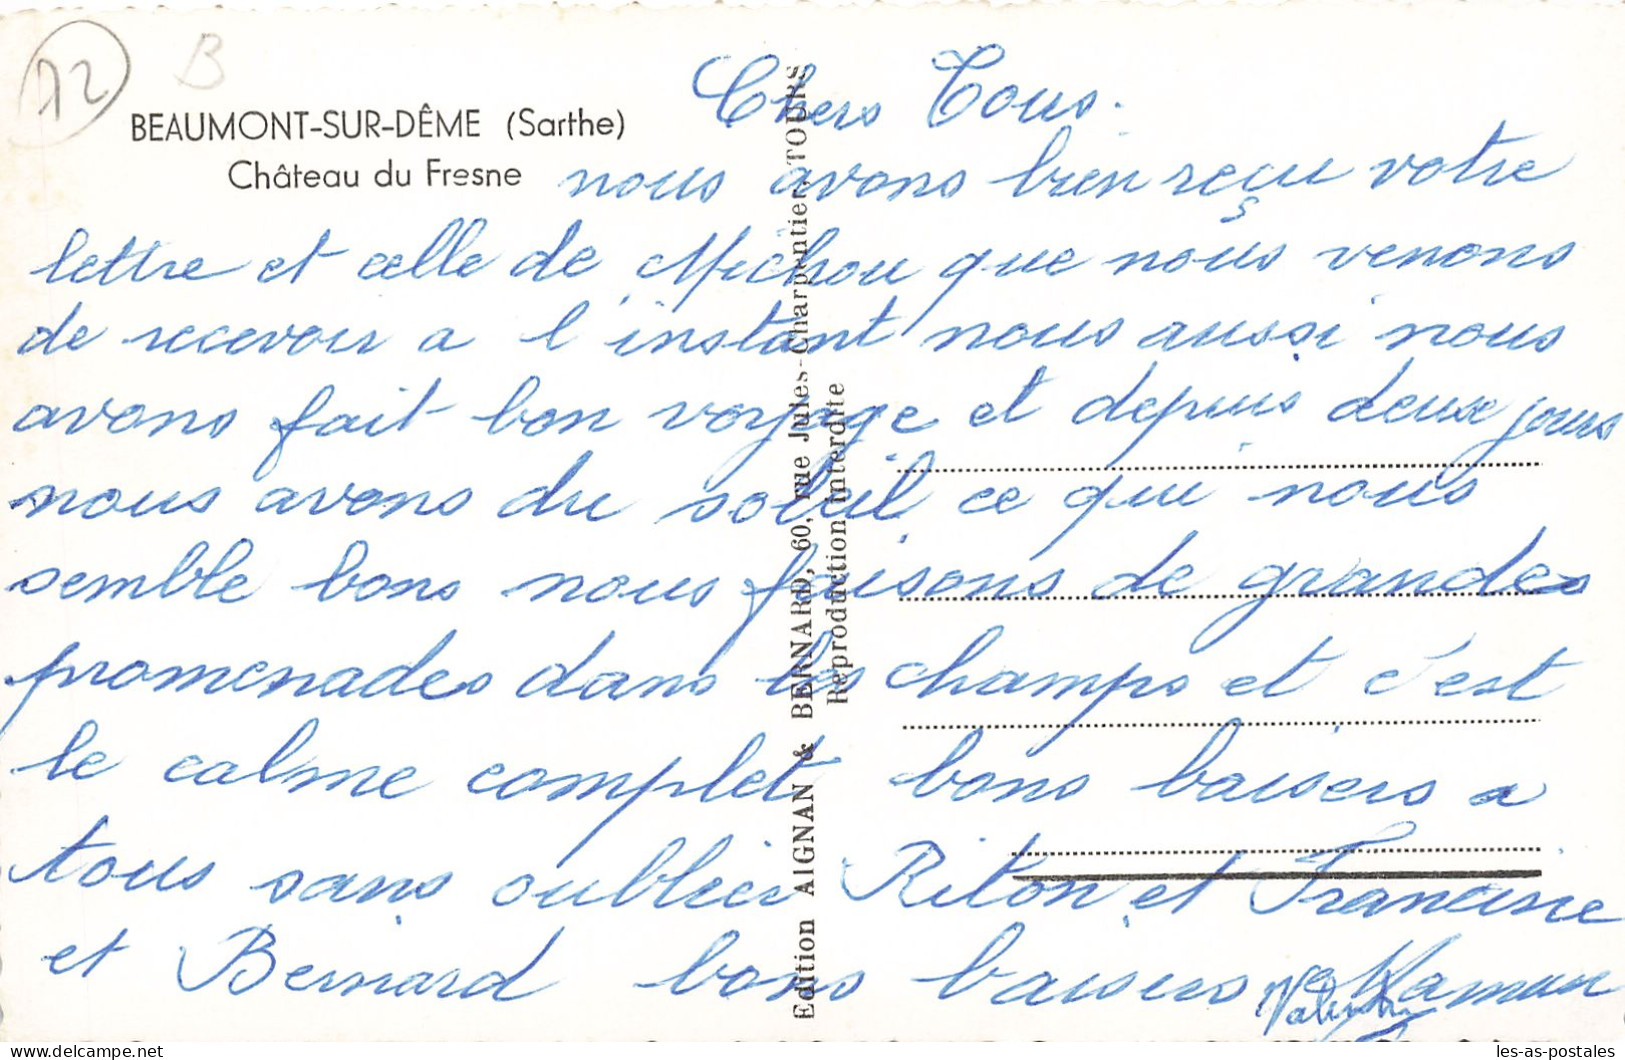 12 B
BEAUMONT-SUR-DÊME (Sarthe)
Château du Fresne
Chers Tous.
nous avons bien reçu votre
lettre et celle de Michou que nous venons
de recevoir a l'instant nous aussi nous
avons fait bon voyage et depuis deux jours
nous avons du soleil ce qui nous
semble bons nous faisons de grandes
promenades dans les champs et c'est
le calme complet bons baisers a
tous sans oublier Riton et Francine
et Bernard bons baisers
Edition AIGNAN & BERNARD, 60, rue Jules-Charpentier, TOURS
Reproduction interdite
les-as-postales